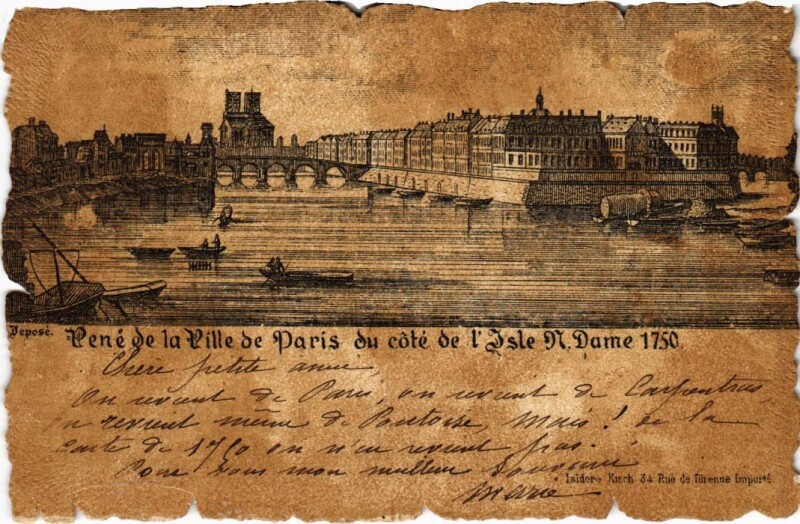 Deposé.
Vené de la Ville de Paris du côté de l'Isle N. Dame 1750
Chère petite amie
On revient de Paris, on revient de Carpentras,
on revient même de Pontoise, mais! de la
carte de 1750 on n'en revient pas.
Pour vous mon meilleur souvenir
Isidore Kisch 34 Rue de Turenne Importé.
Marie